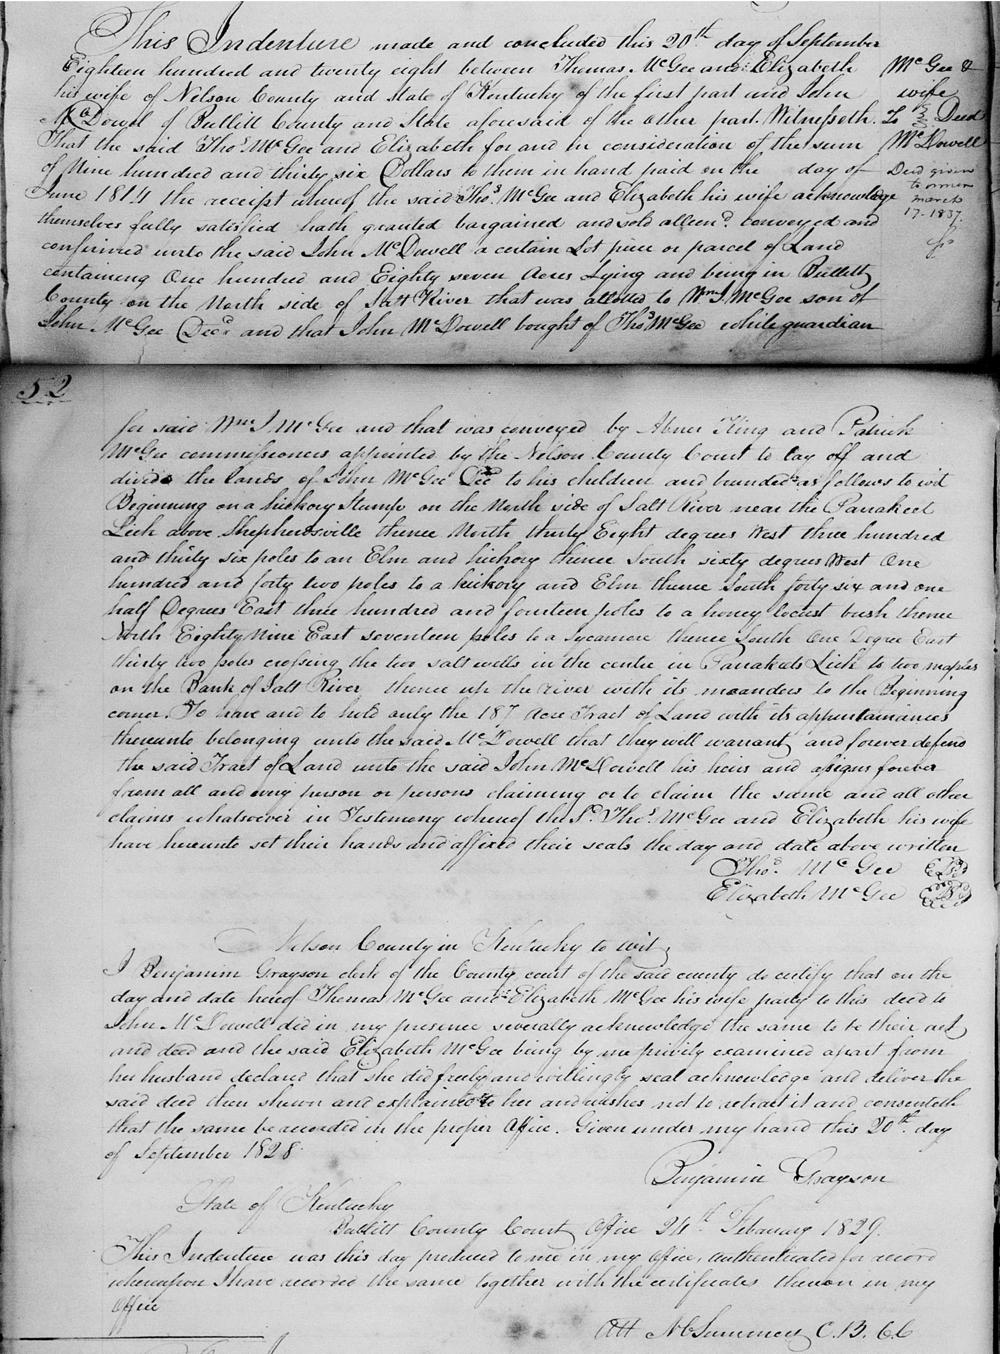 This Indenture made and concluded this 20th day of September
Eighteen hundred and twenty eight between Thomas McGee and Elizabeth
his wife of Nelson County and State of Kentucky of the first part and John
McDowel of Bullitt County and State aforesaid of the other part. Witnesseth
That the said Thos. McGee and Elizabeth for and in consideration of the sum
of Nine hundred and thirty six Dollars to them in hand paid on the day of
June 1814 the receipt whereof the said Thos. McGee and Elizabeth his wife acknowledge
themselves fully satisfied hath granted bargained and sold aliend. conveyed and
confirmed unto the said John McDowell a certain Lot piece or parcel of Land
containing One hundred and Eighty seven Acres Lying and being in Bullitt
County on the North side of Salt River that was alloted to Wm J McGee son of
John McGee Decd and that John McDowell bought of Thos McGee while guardian
McGee &
wife
To Deed
McDowell
Deed given
to owner
march
17-1837.
52
for said Wm J McGee and that was conveyed by Abner King and Patrick
McGee commissioners appointed by the Nelson County Court to lay off and
divide the lands of John McGee Decd to his children and bounded as follows to wit
Beginning on a hickory Stump on the North side of Salt River near the Panakeet
Lick above Shepherdsville thence North thirty Eight degrees West three hundred
and thirty six poles to an Elm and hickory thence South sixty degrees West One
hundred and forty two poles to a hickory and Elm thence South forty six and one
half Degrees East three hundred and fourteen poles to a honey locust bush thence
North Eighty Nine East seventeen poles to a Sycamore thence South One Degree East
thirty two poles crossing the two salt wells in the centre in Panakeets Lick to two maples
on the Bank of Salt River thence up the river with its meanders to the Beginning
corner. To have and to hold only the 187 Acre Tract of Land with its appurtainances
thereunto belonging unto the said McDowell that they will warrant and forever defend
the said Tract of Land unto the said John McDowell his heirs and assigns forever
from all and every person or persons claiming or to claim the same and all other
claims whatsoever in Testemony whereof the Sd. Thos. McGee and Elizabeth his wife
have hereunto set their hands and affixed their seals the day and date above written
Thos. McGee
Elizabeth McGee
Nelson County in Kentucky to wit,
I Benjamin Grayson clerk of the County court of the said county do certify that on the
day and date hereof Thomas McGee and Elizabeth McGee his wife party to this deed to
John McDowell did in my presence severally acknowledge the same to be their act
and deed and the said Elizabeth McGee being by me privily examined apart from
her husband declared that she did freely and willingly seal acknowledge and deliver the
said deed then shewn and explained to her and wishes not to retract it and consenteth
that the same be recorded in the proper Office. Given under my hand this 20th day
of September 1828
Benjamin Grayson
State of Kentucky
Bullitt County Court Office 24th February 1829.
This Indenture was this day produced to me in my office, authenticated for record
whereupon I have recorded the same together with the certificates thereon in my
Office
Att N C Summers C.B.C.C